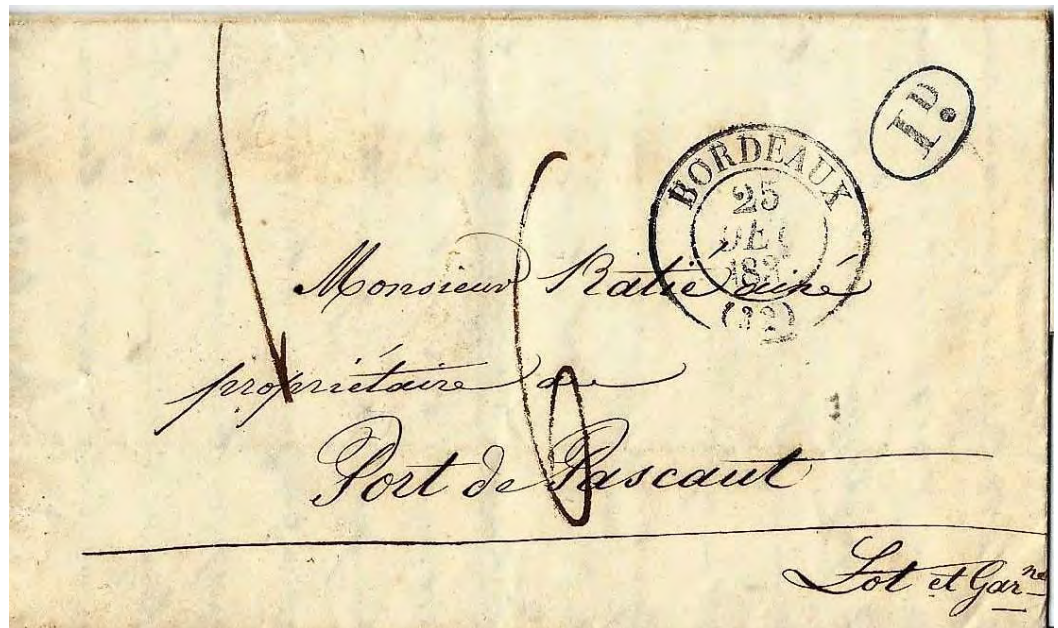 1D.
BORDEAUX
25
DEC
183
(32)
16
Monsieur Ratié ainé
propriétaire au
Port de Pascaut
Lot et Gar.ne